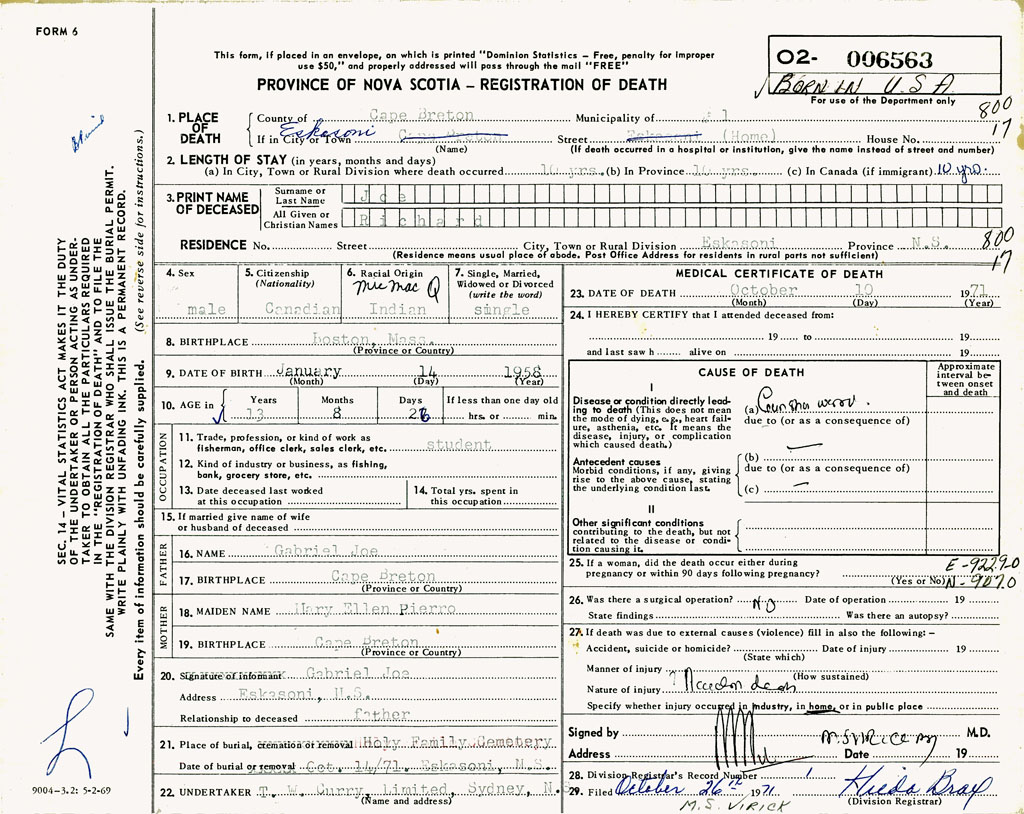 FORM 6
This form, if placed in an envelope, on which is printed "Dominion Statistics – Free, penalty for improper
use $50," and properly addressed will pass through the mail "FREE"
PROVINCE OF NOVA SCOTIA – REGISTRATION OF DEATH
02- 006563
BORN IN U.S.A.
For use of the Department only
800
17
1. PLACE OF DEATH
County of Cape Breton Municipality of
If in City or Town Eskasoni Cape Breton Street Eskasoni (Home) House No.
(Name) (If death occurred in a hospital or institution, give the name instead of street and number)
2. LENGTH OF STAY (in years, months and days)
(a) In City, Town or Rural Division where death occurred 10 yrs. (b) In Province 10 yrs. (c) In Canada (if immigrant) 10 yrs.
3. PRINT NAME OF DECEASED
Surname or Last Name Joe
All Given or Christian Names Richard
RESIDENCE No. Street City, Town or Rural Division Eskasoni Province N.S. 800
(Residence means usual place of abode. Post Office Address for residents in rural parts not sufficient) 17
4. Sex
male
5. Citizenship (Nationality)
Canadian
6. Racial Origin
Mic Mac
Indian
7. Single, Married, Widowed or Divorced (write the word)
single
8. BIRTHPLACE Boston, Mass.
(Province or Country)
9. DATE OF BIRTH January 14 1958
(Month) (Day) (Year)
10. AGE in Years Months Days If less than one day old
13 8 26 hrs. or min.
OCCUPATION
11. Trade, profession, or kind of work as
fisherman, office clerk, sales clerk, etc. student
12. Kind of industry or business, as fishing,
bank, grocery store, etc.
13. Date deceased last worked
at this occupation
14. Total yrs. spent in
this occupation
15. If married give name of wife
or husband of deceased
FATHER
16. NAME Gabriel Joe
17. BIRTHPLACE Cape Breton
MOTHER
18. MAIDEN NAME Mary Ellen Pierro
19. BIRTHPLACE Cape Breton
(Province or Country)
20. Signature of informant Gabriel Joe
Address Eskasoni, N.S.
Relationship to deceased father
21. Place of burial, cremation or removal Holy Family Cemetery
Date of burial or removal Oct. 14/71. Eskasoni, N.S.
22. UNDERTAKER T. W. Curry, Limited, Sydney, N.S
(Name and address)
MEDICAL CERTIFICATE OF DEATH
23. DATE OF DEATH October 10 1971
(Month) (Day) (Year)
24. I HEREBY CERTIFY that I attended deceased from:
19 to 19
and last saw h alive on 19
CAUSE OF DEATH
Approximate interval between onset and death
I
Disease or condition directly leading to death (This does not mean the mode of dying, e.g., heart failure, asthenia, etc. It means the disease, injury, or complication which caused death.)
(a) Gunshot wound.
due to (or as a consequence of)
Antecedent causes
Morbid conditions, if any, giving rise to the above cause, stating the underlying condition last.
(b)
due to (or as a consequence of)
(c)
II
Other significant conditions
contributing to the death, but not related to the disease or condition causing it.
25. If a woman, did the death occur either during
pregnancy or within 90 days following pregnancy?
(Yes or No)
E-92290
N-9070
26. Was there a surgical operation? NO Date of operation 19
State findings Was there an autopsy?
27. If death was due to external causes (violence) fill in also the following: –
Accident, suicide or homicide? Date of injury 19
(State which)
Manner of injury
(How sustained)
Nature of injury
Specify whether injury occurred in industry, in home, or in public place
Signed by M.D.
Address Date 19
28. Division Registrar's Record Number 1
29. Filed October 26th 1971 Hilda Bray
M.S. VIRICK (Division Registrar)
SEC. 14 – VITAL STATISTICS ACT MAKES IT THE DUTY
OF THE UNDERTAKER OR PERSON ACTING AS UNDER-
TAKER TO OBTAIN ALL THE PARTICULARS REQUIRED
IN THE "REGISTRATION OF DEATH" AND TO FILE THE
SAME WITH THE DIVISION REGISTRAR WHO SHALL ISSUE THE BURIAL PERMIT.
WRITE PLAINLY WITH UNFADING INK. THIS IS A PERMANENT RECORD.
Every item of information should be carefully supplied. (See reverse side for instructions.)
9004-3.2: 5-2-69